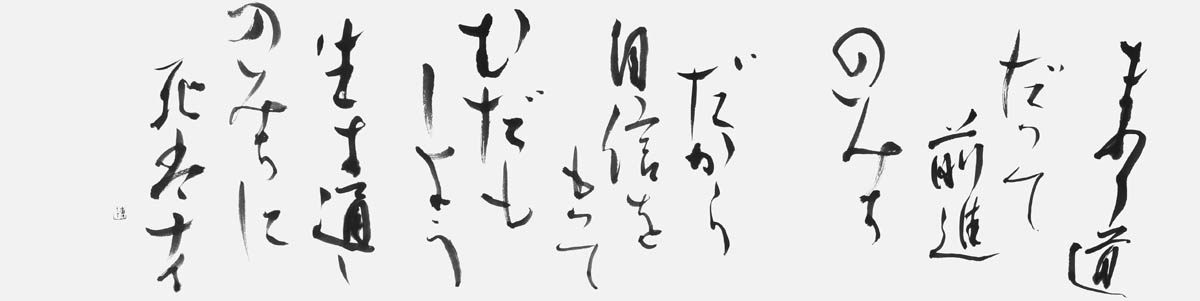 まわり道
だって
前進
のみち
だから
自信を
もって
むだも
しよう
生き通し
のみちに
死はナイ